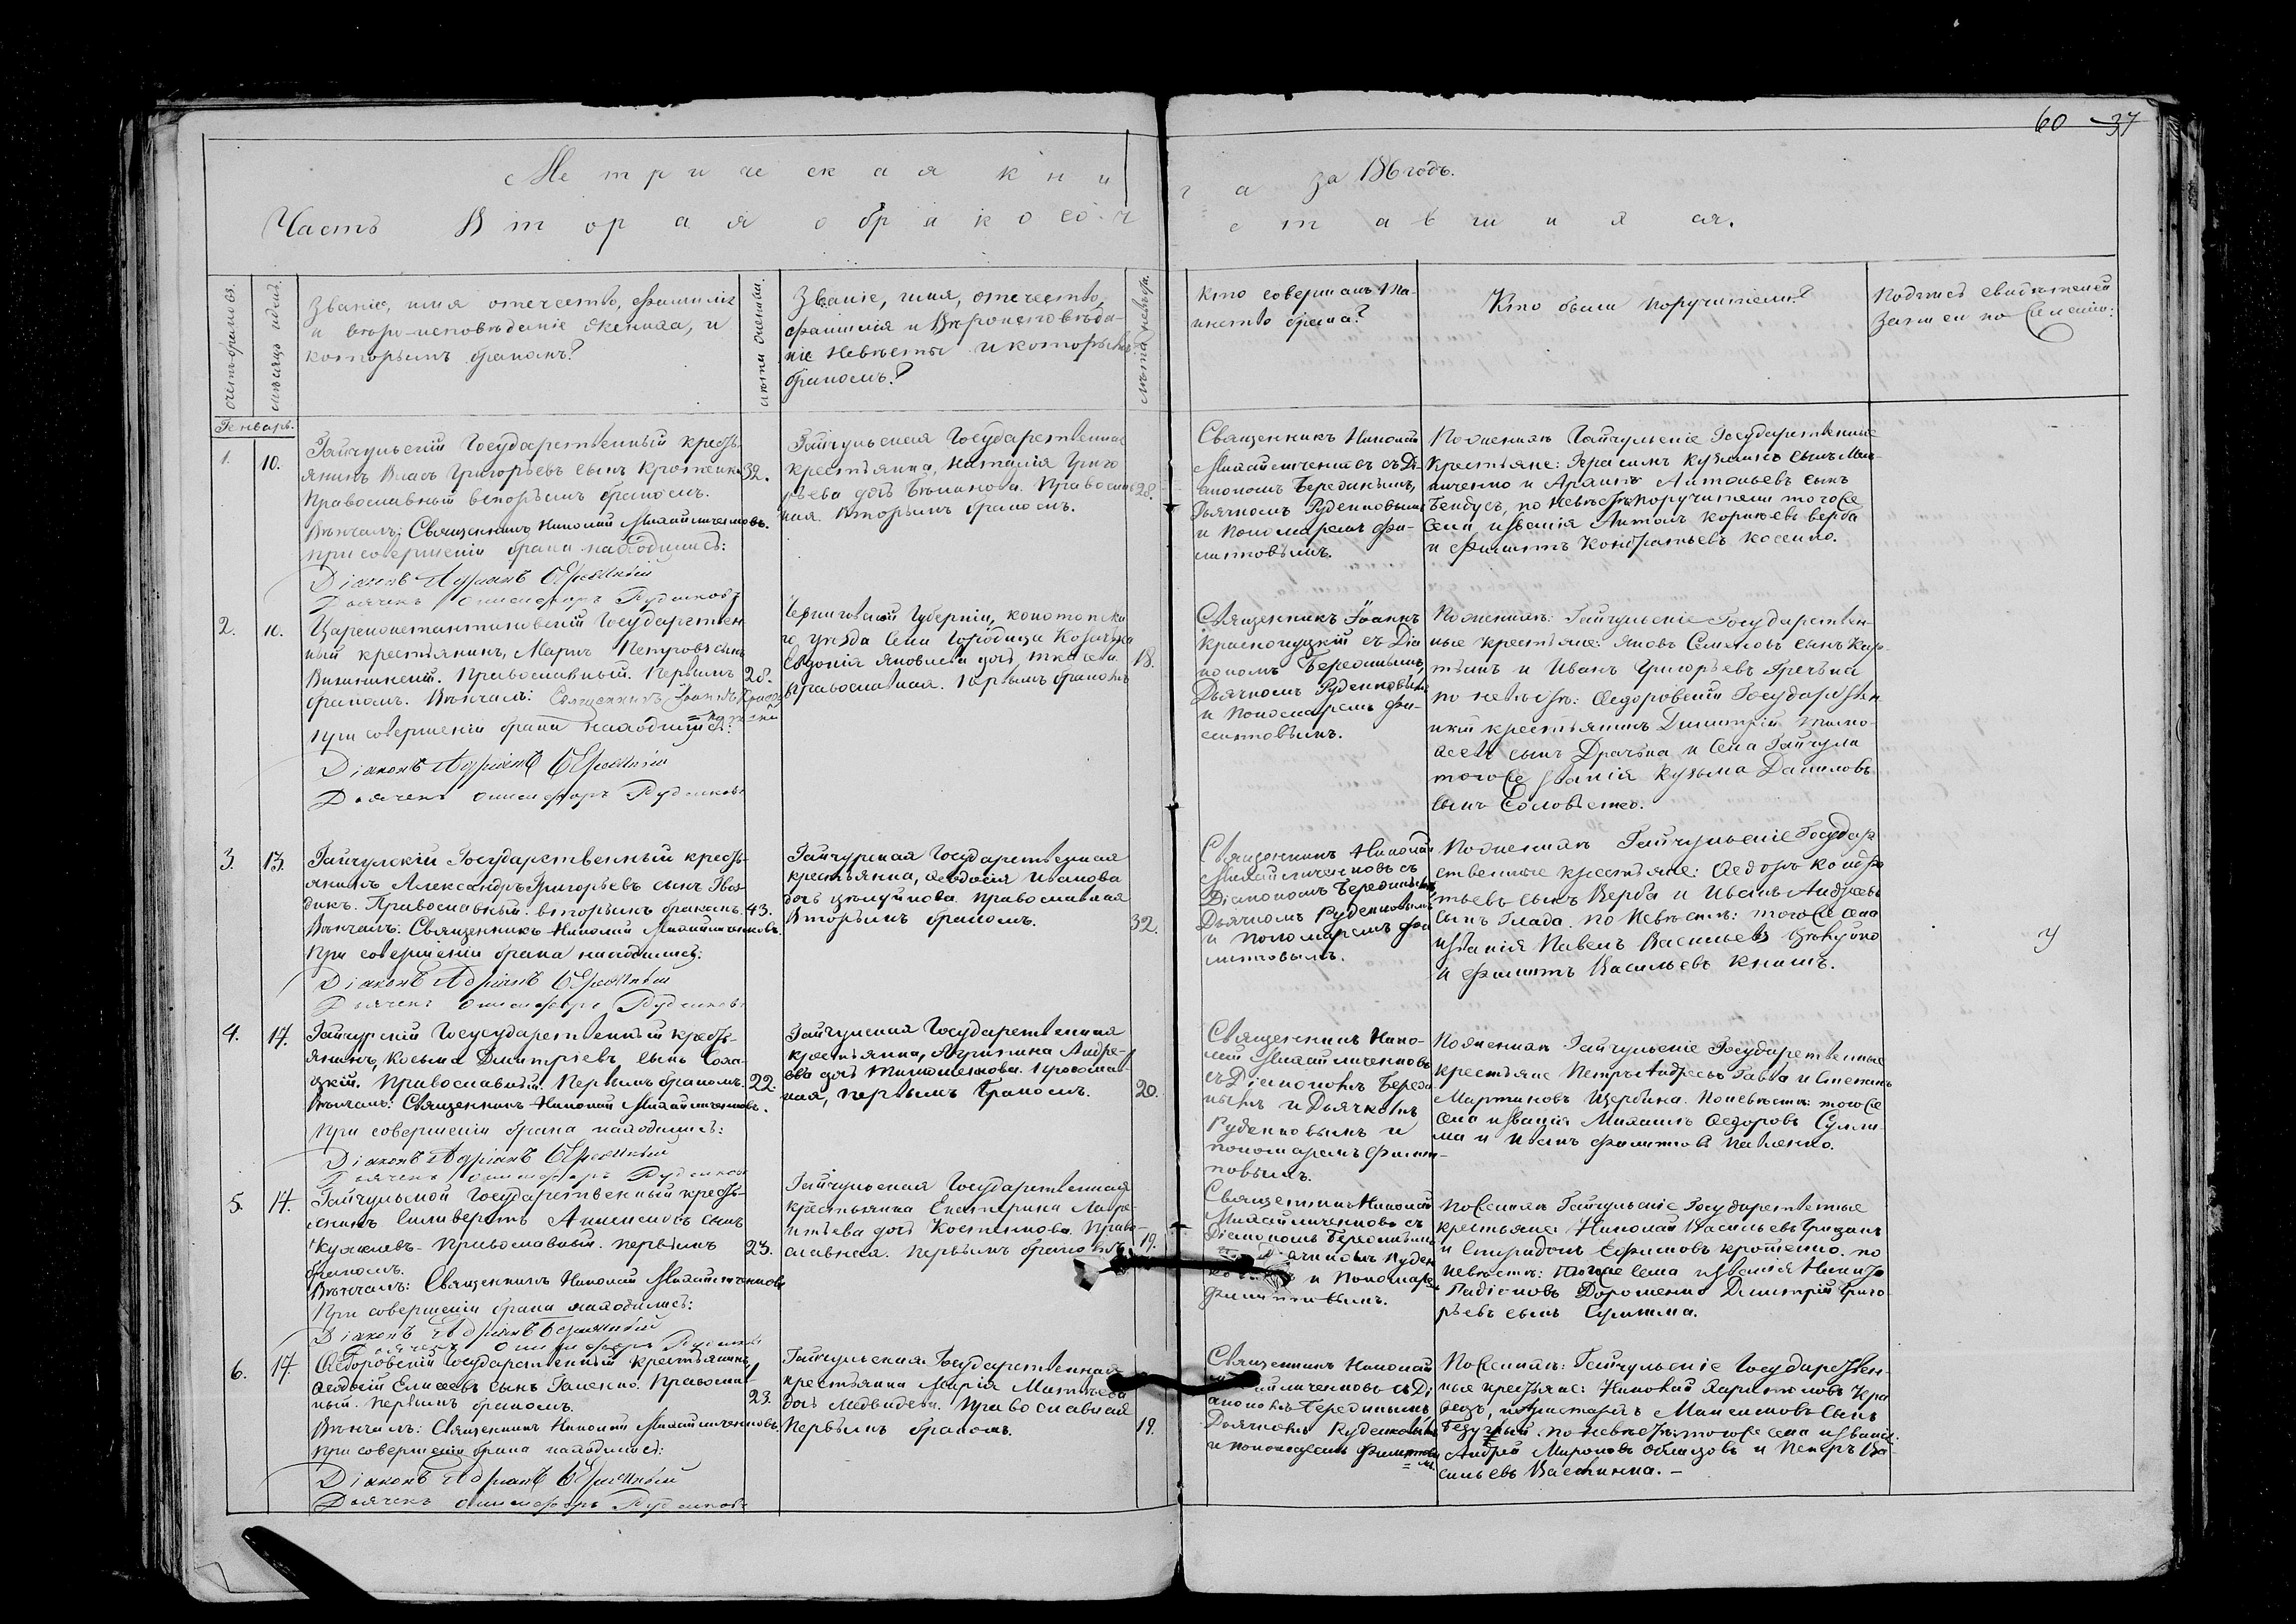 60 37
Метрическая книга за 186 годъ.
Часть Вторая о бракосочетавшихся.
Счетъ браковъ.
Мѣсяцъ и день.
Званіе, имя отечество, фамилія
и вѣро-исповѣданіе жениха, и
которымъ бракомъ?
Лѣта жениха.
Званіе, имя, отечество,
фамилія и Вѣроисповѣда-
ніе Невѣсты и которымъ
бракомъ?
Лѣта невѣсты.
Кто совершалъ та-
инство брака?
Кто были поручители?
Подпись свидѣтелей
записи по желанію:
Генварь.
1.
10.
Гайчульскій Государственный кресть-
янинъ Власъ Григорьевъ сынъ Кротенко
Православный вторымъ бракомъ.
Вѣнчалъ: Священникъ Николай Михайличенковъ.
При совершеніи брака находились:
Діаконъ Адріанъ Бережный
Дьячекъ Онисифоръ Руденковъ
32.
Гайчульская Государственная
крестьянка, Наталія Григо
рьева дочь Православ
ная. Вторымъ бракомъ.
28.
Священникъ Николай
Михайличенковъ съ Ді-
акономъ Бережнымъ,
Дьячкомъ Руденковымъ
и Пономаремъ Фи-
липовымъ.
По женихѣ Гайчульскіе Государственные
Крестьяне: Герасимъ Кузминъ сынъ
и Антоньевъ сынъ
по невѣстѣ поручители того же
села и званія Антонъ Корнѣевъ Верба
и Филиппъ Кондратьевъ Косенко.
2.
10.
Цареконстантиновскій Государствен
ный крестьянинъ, Петровъ сынъ
Православный. Первымъ
бракомъ. Вѣнчалъ: Священникъ Іоаннъ Красно
=куцкій
При совершеніи брака находились:
Діаконъ Адріанъ Бережный
Дьячекъ Онисифоръ Руденковъ
28.
Черниговской Губерніи, Конотопска
го, уѣзда Села Городища Козачка
Евдокія Яковлева дочь, Ткачева
православная. Первымъ бракомъ
18.
Священникъ Іоаннъ
Краснокуцкій съ Діа
кономъ Бережнымъ,
Дьячкомъ Руденковымъ
и Пономаремъ Фи-
липовымъ.
По женихѣ: Гайчульскіе Государствен-
ные крестьяне: Яковъ Семеновъ сынъ
и Иванъ Григорьевъ Гречка
по невѣстѣ: Ѳедоровскій Государствен
ный крестьянинъ Димитрій Тимо-
ѳеевъ сынъ Драчъ и Села Гайчула
того же званія Кузьма Даниловъ
сынъ Соловьенко.
3.
13.
Гайчулскій Государственный кресть-
янинъ Александръ Григорьевъ сынъ Гвоз
дикъ. Православный. вторымъ бракомъ.
Вѣнчалъ: Священникъ Николай Михайличенковъ.
При совершеніи брака находились:
Діаконъ Адріанъ Бережный
Дьячекъ Онисифоръ Руденковъ
43.
Гайчурская Государственная
крестьянка, Ѳеодосія Иванова
дочь Цѣлуйкова. Православная
Вторымъ бракомъ.
32.
Священникъ Николай
Михайличенковъ съ
Діакономъ Бережнымъ
Дьячкомъ Руденковымъ
и пономаремъ Фи
липовымъ.
По женихѣ Гайчульскіе Государ
ственные крестьяне: Ѳедоръ Кондра
тьевъ сынъ Верба и Иванъ Андреевъ
сынъ Глада. по невѣстѣ: того же села
и званія Павелъ Васильевъ Цѣлуйко
и Филиппъ Васильевъ Книшъ.
4.
17.
Гайчурскій Госусударственный кресть-
янинъ, Косьма Димитріевъ сынъ
Православный. Первымъ бракомъ.
Вѣнчалъ: Священникъ Николай Михайличенковъ.
При совершеніи брака находились:
Діаконъ Адріанъ Бережный
Дьячекъ Онисифоръ Руденковъ
22.
Гайчулская Государственная
крестьянка, Агрипина Андре-
ева дочь Тимошенкова. Православ-
ная, первымъ бракомъ.
20.
Священникъ Нико-
лай Михайличенковъ
съ Діакономъ Береж
нымъ и Дьячкомъ
Руденковымъ и
пономаремъ Филип-
повымъ.
По женихѣ Гайчульскіе Государственные
крестьяне Петръ Андреевъ и Степанъ
Мартиновъ Щербина. По невѣстѣ: того же
села и званія Михаилъ Ѳедоровъ Сули-
ма и Иванъ Филипповъ Павленко.
5.
17.
Гайчульскій Государственный кресть-
янинъ Силиверстъ Алексеевъ сынъ
Кужелевъ. Православный. первымъ
бракомъ.
Вѣнчалъ: Священникъ Николай Михайличенковъ
При совершеніи брака находились:
Діаконъ Адріанъ Бережный
Дьячекъ Онисифоръ Руденковъ
23.
Гайчульская Государственная
крестьянка Екатерина Лавре-
нтьева дочь Костенкова. Право-
славная. Первымъ бракомъ.
19.
Священникъ Николай
Михайличенковъ съ
Діакономъ Бережнымъ
Дьячкомъ Руден
и Пономаре
Филипповымъ.
По женихѣ Гайчульскіе Государственные
крестьяне Николай Васильевъ
и Спиридонъ Ефимовъ Кротенко. по
невѣстѣ: того же села и званія Никифо
Радіоновъ Дорошенко Димитрій Григо
рьевъ сынъ Сулима.
6.
17.
Ѳедоровскій Государственный крестьянинъ
Ѳеодосій Елисеевъ сынъ Галенко. Православ-
ный. Первымъ бракомъ.
Вѣнчалъ: Священникъ Николай Михайличенковъ.
При совершеніи брака находились:
Діаконъ Адріанъ Бережный
Дьячекъ Онисифоръ Руденковъ
23.
Гайчульская Государственная
крестьянка Марія Матвѣева
дочь Медвидева. Православная
Первымъ бракомъ.
19.
Священникъ Николай
съ Ді
акономъ Бережнымъ
Дьячкомъ Руденковымъ
и пономаремъ Филиппов
=мъ.
По женихѣ: Гайчульскіе Государствен-
ные крестьяне: Николай Харитоновъ Кра
вецъ, и Максимовъ сынъ
по невѣстѣ: того же села и званія
Андрей Мироновъ Облизовъ и Петръ Ва
сильевъ Васткина. -